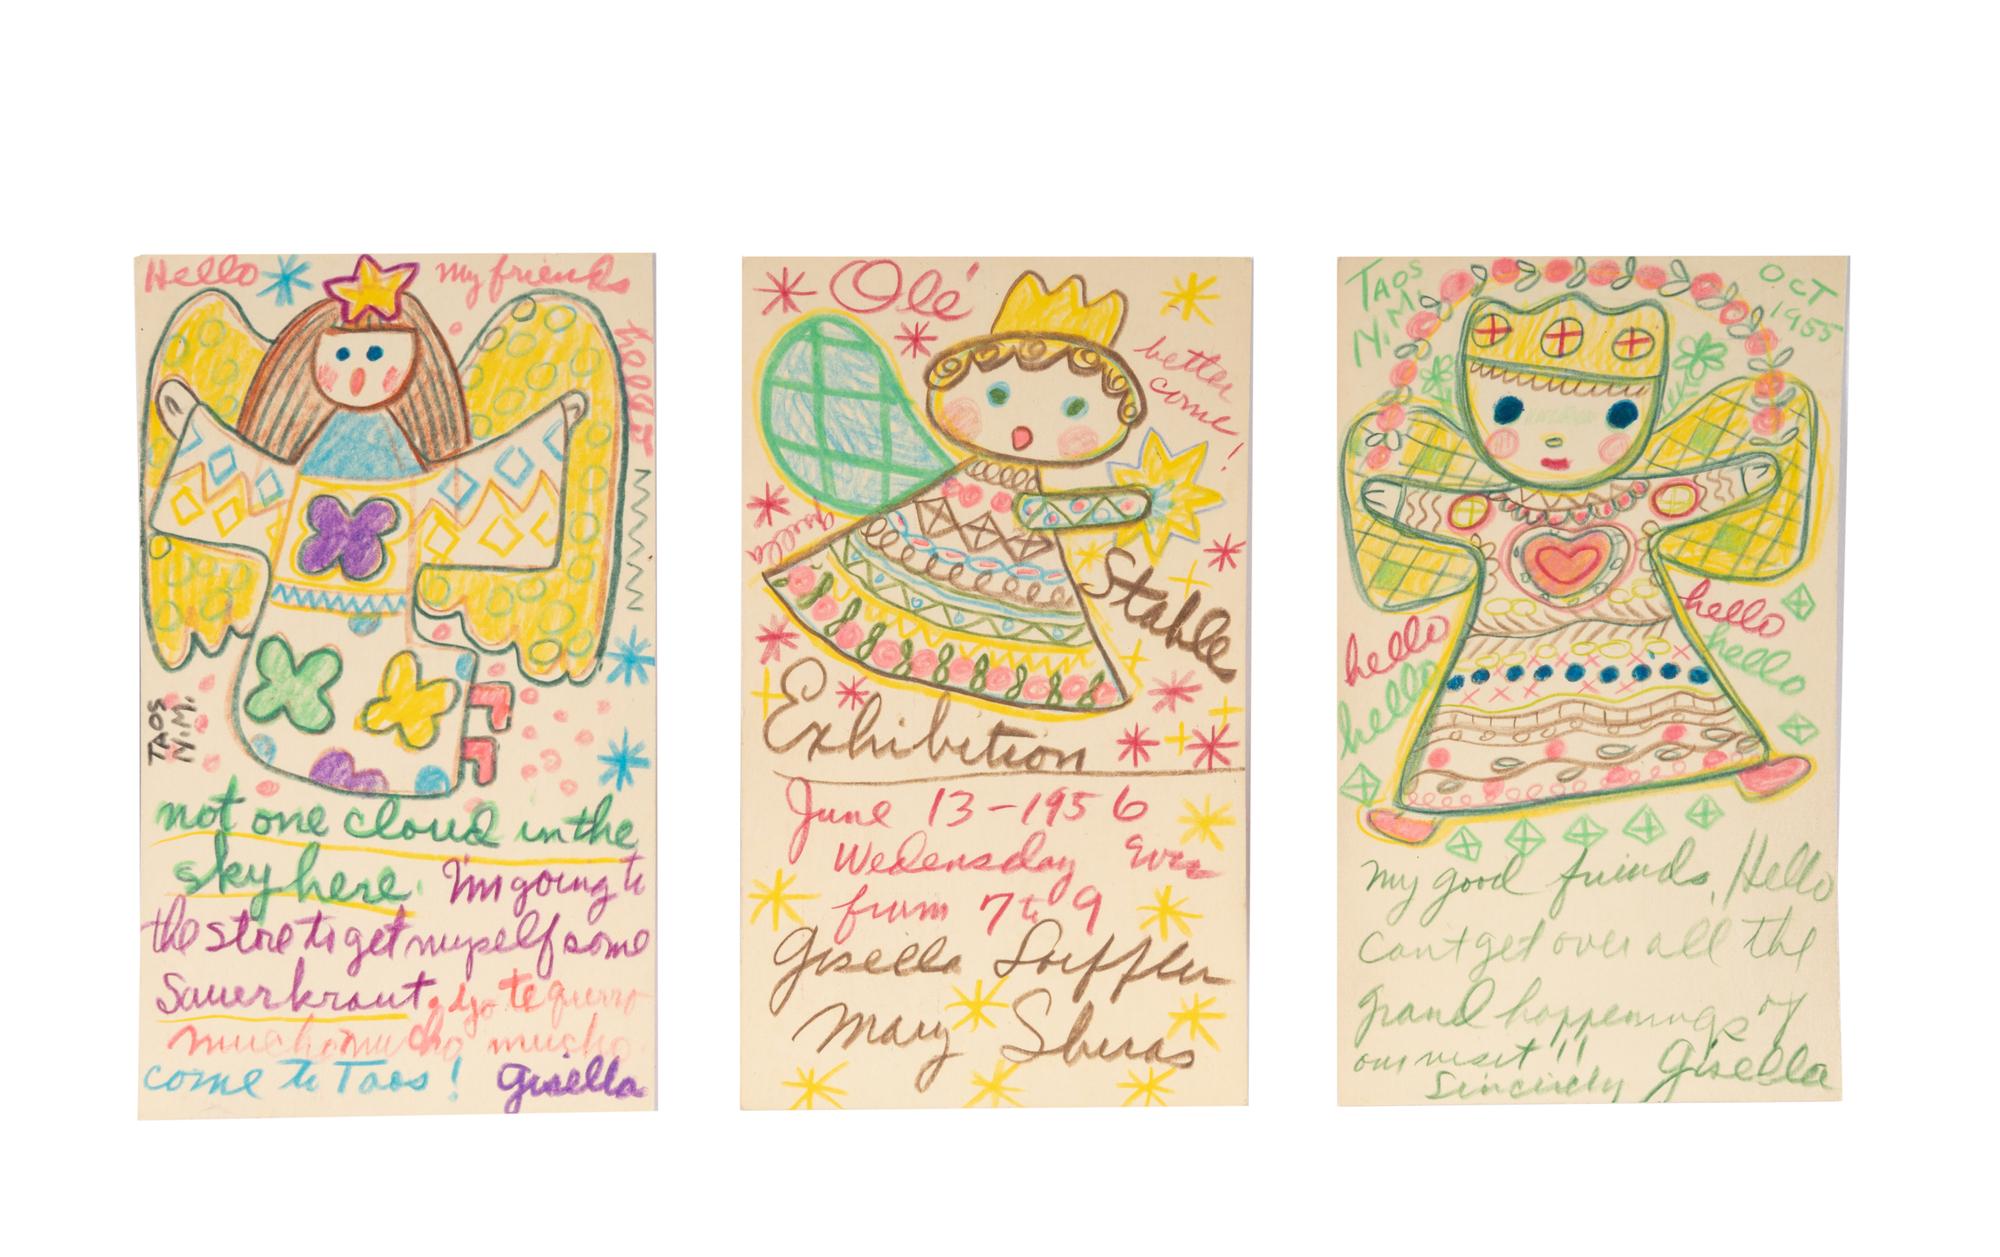 Hello my friends
TAOS
N.M.
not one cloud in the
sky here. I'm going to
the store to get myself some
Sauerkraut,
mucho mucho mucho
come to Taos! Gisella
Olé
better
come!
gisella
Stable
Exhibition
June 13-1956
Wedensday Eve
from 7 to 9
Gisella Loeffler
Mary
TAOS
N.M.
OCT
1955
hello
hello
hello
hello
my good friends, Hello
Cant get over all the
grand happenings of
our visit!! Gisella
Sincirely